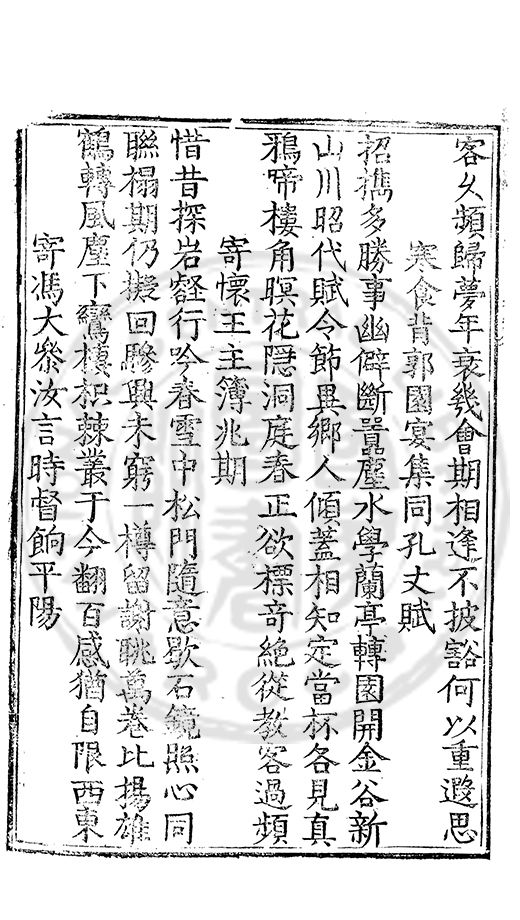 客久頻歸夢年衰幾會期相逢不披豁何以重遐思
寒食背郭園宴集同孔丈賦
招携多勝事幽僻斷囂塵水學蘭亭轉園開金谷新
山川昭代賦令節異鄉人傾蓋相知定當杯各見真
鴉啼樓角暝花隱洞庭春正欲標奇絶從教客過頻
寄懷王主簿兆期
惜昔探岩壑行吟春雪中松門隨意歇石鏡照心同
聯榻期仍擬回驂興未窮一樽留謝眺萬卷比揚雄
鶴轉風塵下鸞棲枳棘叢于今翻百感猶自限西東
寄馮大叅汝言時督餉平陽